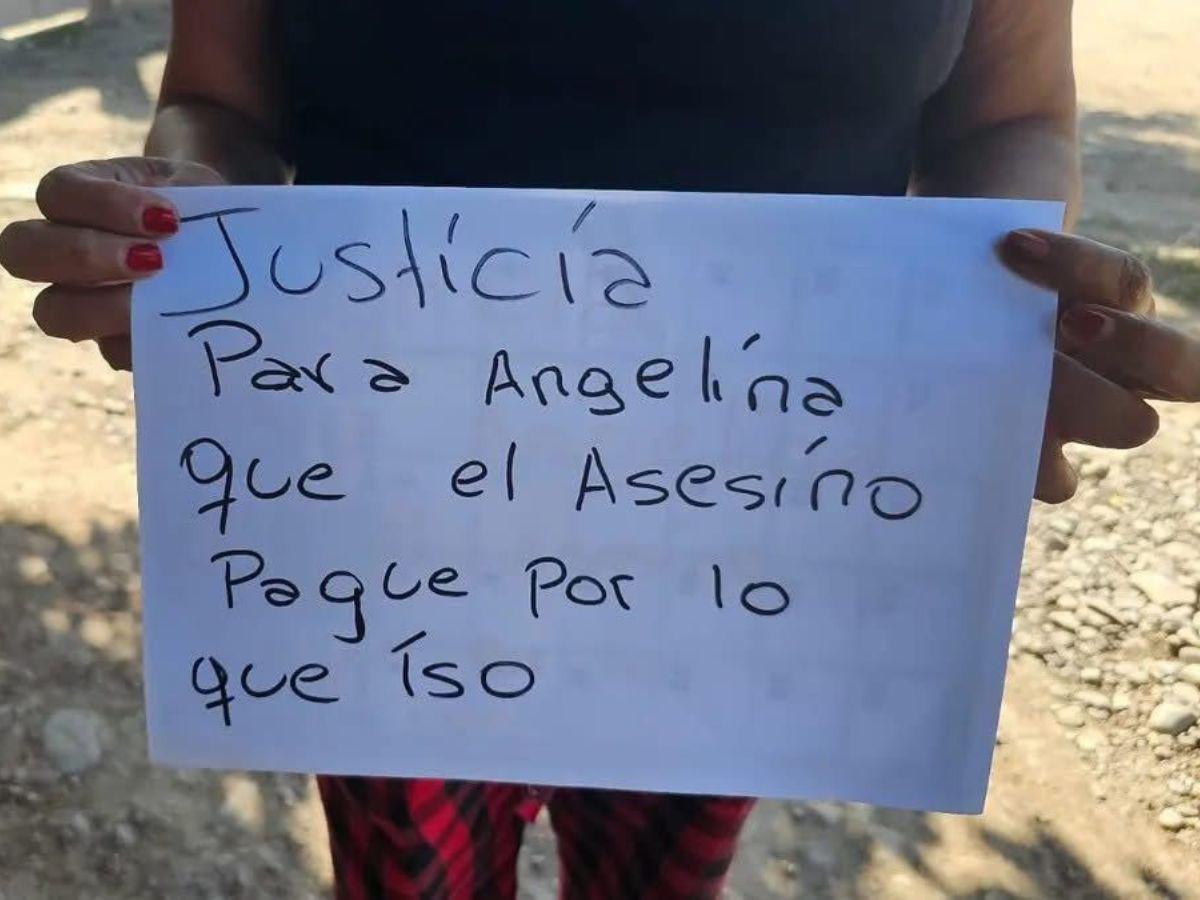 Justicia
Para Angelina
que el Asesino
Pague Por lo
que iso